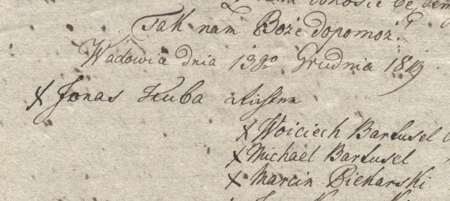 Tak nam Boże dopomoż.
Wadowia dnia 13go Grudnia 1819
x Jonas Kuba
x Woiciech Bartusel
x Michael Bartusel
x Marcin Piekarski